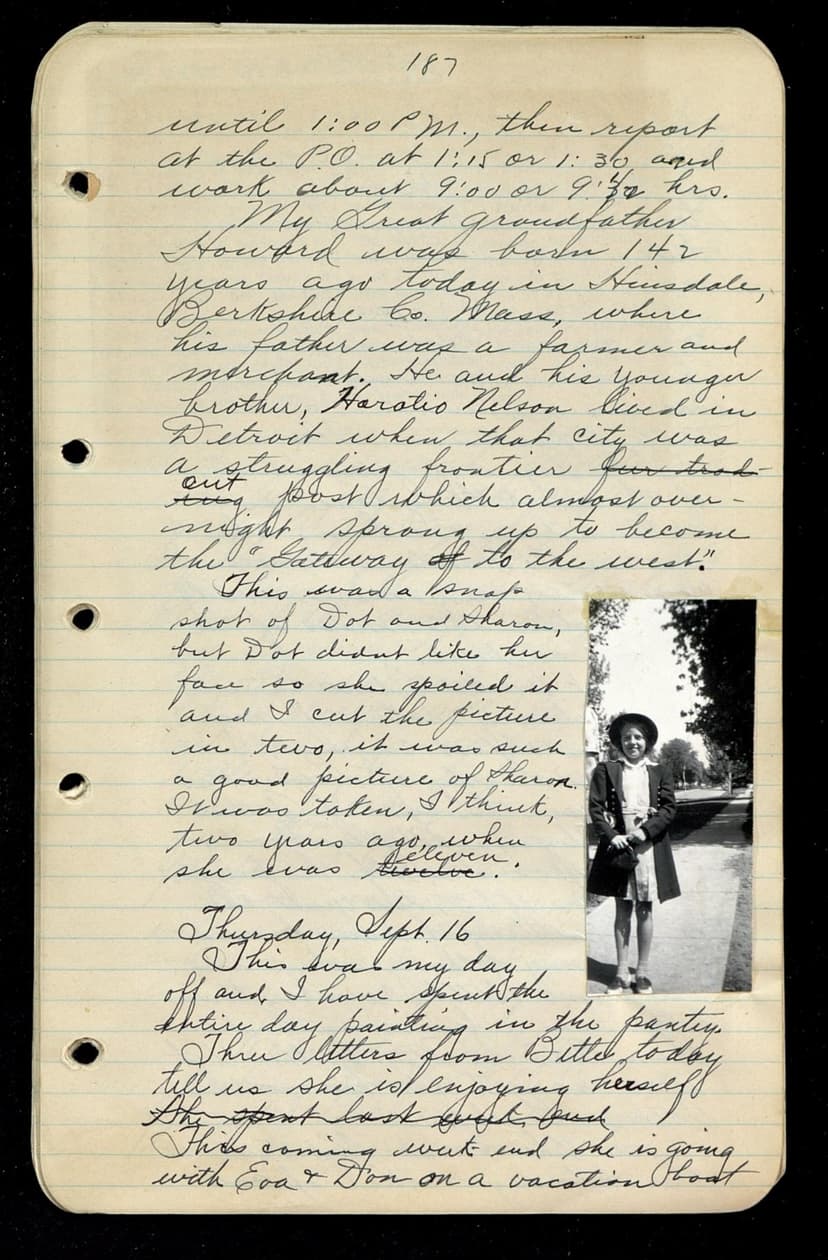 187
until 1:00 P.M., then report
at the P.O. at 1:15 or 1:30 and
work about 9:00 or 9: hrs.
My Great grandfather
Howard was born 142
years ago today in Hinsdale,
Berkshire Co. Mass, where
his father was a farmer and
merchant. He and his younger
brother, Horatio Nelson lived in
Detroit when that city was
a struggling frontier fur trad-
out
ing post which almost over-
night sprang up to become
the "Gateway of to the west."
This was a snap
shot of Dot and Sharon,
but Dot didnt like her
face so she spoiled it
and I cut the picture
in two, it was such
a good picture of Sharon.
It was taken, I think,
two years ago, when
eleven
she was twelve.
Thursday, Sept. 16
This was my day
off and I have spent the
entire day painting in the pantry.
Three letters from Bette today
tell us she is enjoying herself
She spent last week end
This coming week end she is going
with Eva & Don on a vacation boat